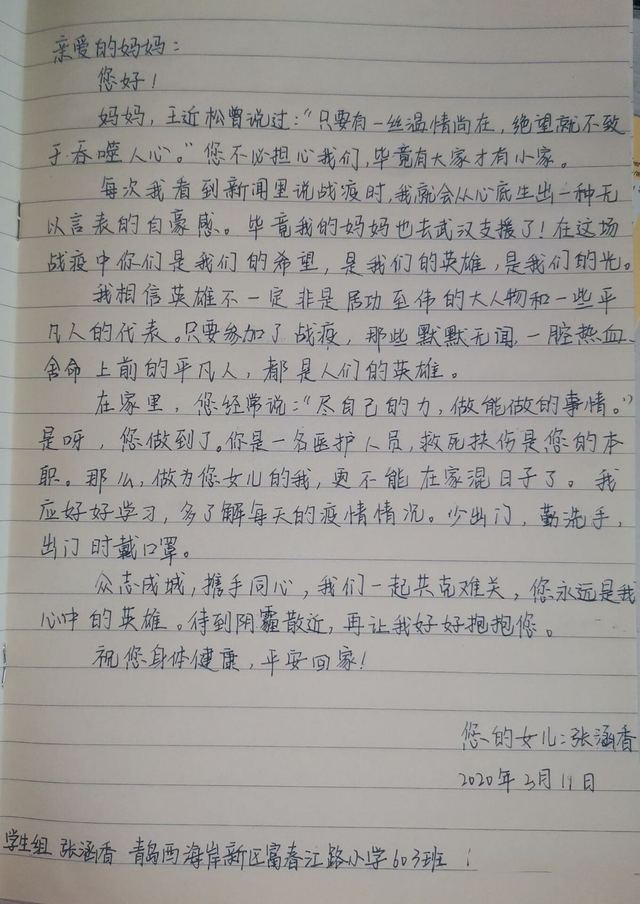 亲爱的妈妈：
您好！
妈妈，王近松曾说过：“只要有一丝温情尚在，绝望就不致
于吞噬人心。”您不必担心我们，毕竟有大家才有小家。
每次我看到新闻里说战疫时，我就会从心底生出一种无
以言表的自豪感。毕竟我的妈妈也去武汉支援了！在这场
战疫中你们是我们的希望，是我们的英雄，是我们的光。
我相信英雄不一定非是居功至伟的大人物和一些平
凡人的代表。只要参加了战疫，那些默默无闻，一腔热血
舍命上前的平凡人，都是人们的英雄。
在家里，您经常说：“尽自己的力，做能做的事情。”
是呀，您做到了。你是一名医护人员，救死扶伤是您的本
职。那么，做为您女儿的我，更不能在家混日子了。我
应好好学习，多了解每天的疫情情况。少出门，勤洗手，
出门时戴口罩。
众志成城，携手同心，我们一起共克难关，您永远是我
心中的英雄。待到阴霾散近，再让我好好抱抱您。
祝您身体健康，平安回家！
您的女儿：张涵香
2020年3月11日
学生组 张涵香 青岛西海岸新区富春江路小学603班